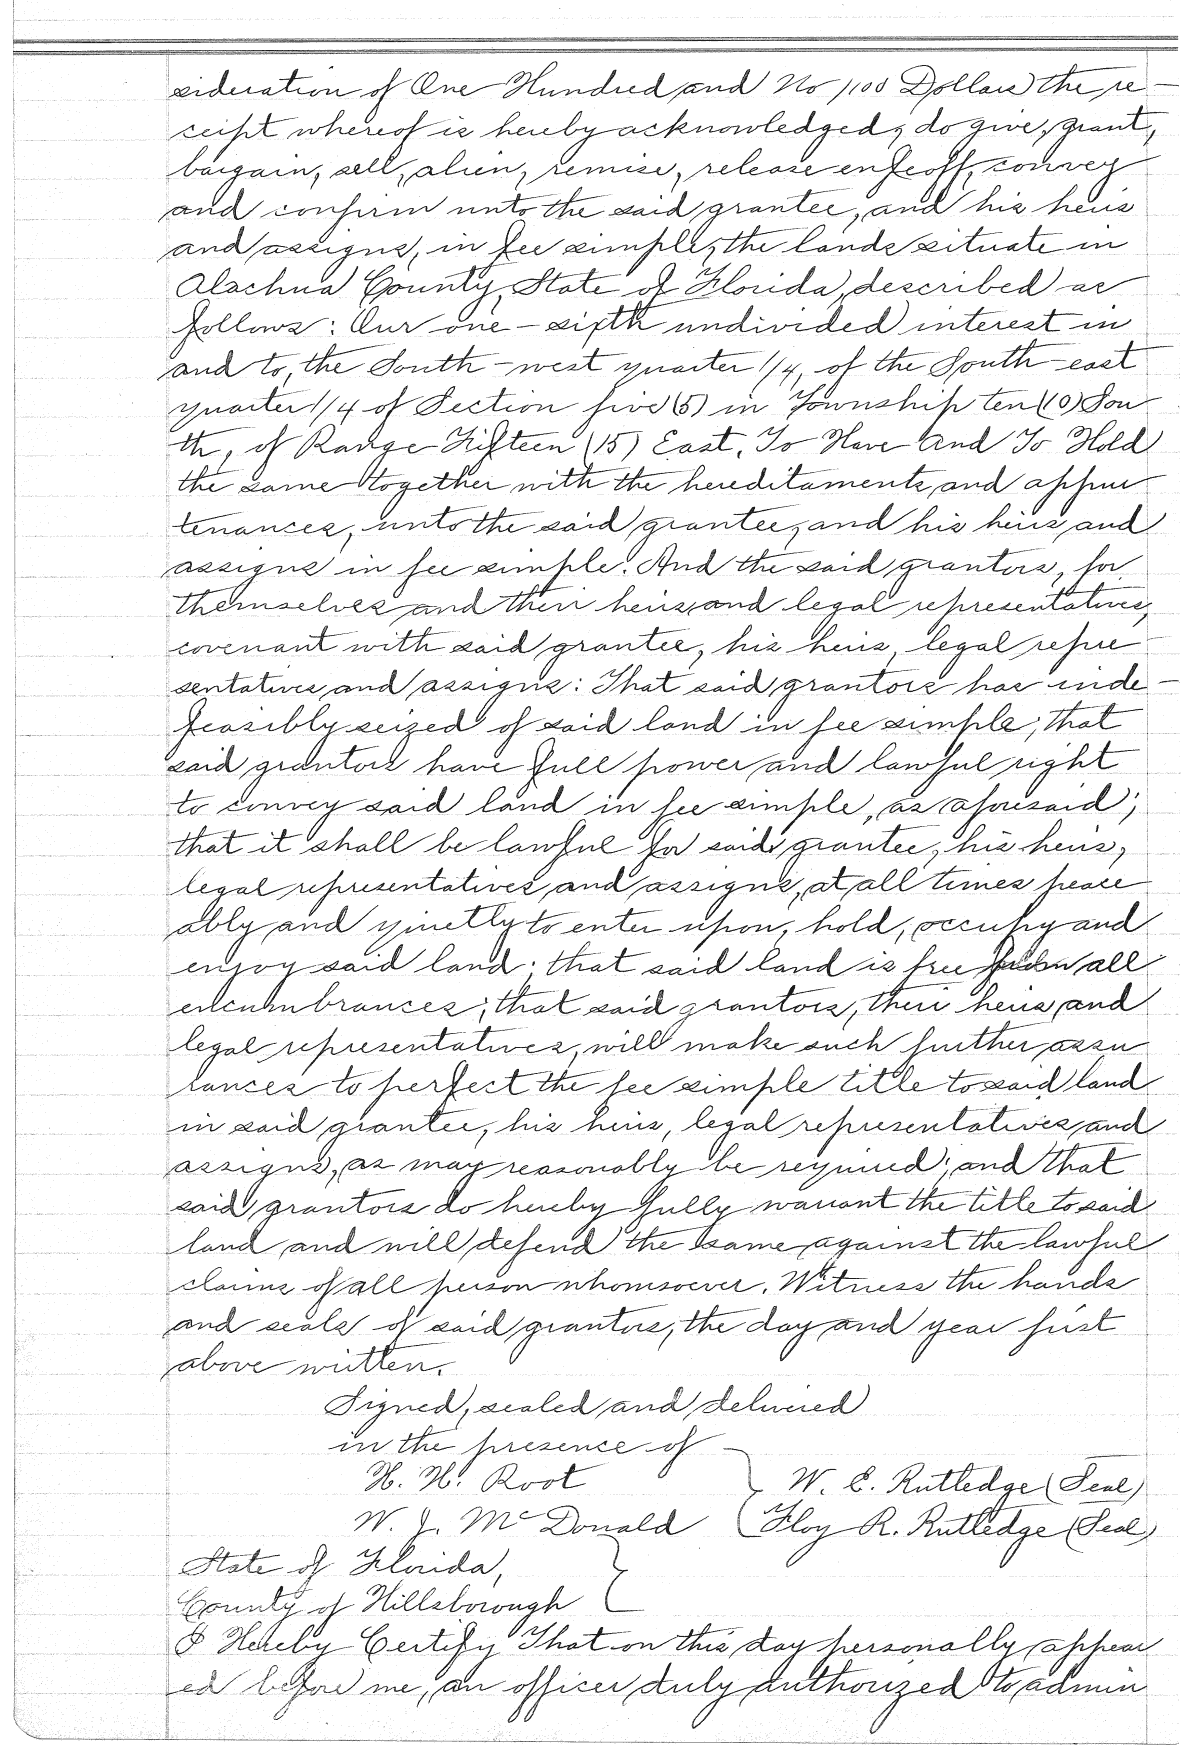 sideration of One Hundred and No/100 Dollars the re-
ceipt whereof is hereby acknowledged, do give, grant,
bargain, sell, alien, remise, release enfeoff, convey
and confirm unto the said grantee, and his heirs
and assigns, in fee simple, the lands situate in
Alachua County, State of Florida, described as
follows: Our one-sixth undivided interest in
and to, the South-west quarter 1/4, of the South-east
quarter 1/4 of Section five (5) in Township ten (10) Sou
th, of Range Fifteen (15) East, To Have and To Hold
the same together with the hereditaments and appur
tenances, unto the said grantee, and his heirs and
assigns in fee simple. And the said grantors, for
themselves and their heirs and legal representatives,
covenant with said grantee, his heirs, legal repre
sentatives and assigns: That said grantors has inde-
feasibly seized of said land in fee simple; that
said grantors have full power and lawful right
to convey said land in fee simple, as aforesaid;
that it shall be lawful for said grantee, his heirs,
legal representatives and assigns, at all times peace
ably and quietly to enter upon, hold, occupy and
enjoy said land; that said land is free from all
encumbrances; that said grantors, their heirs and
legal representatives, will make such further assu
rances to perfect the fee simple title to said land
in said grantee, his heirs, legal representatives and
assigns, as may reasonably be required; and that
said grantors do hereby fully warrant the title to said
land and will defend the same against the lawful
claims of all person whomsoever. Witness the hands
and seals of said grantors, the day and year first
above written.
Signed, sealed and delivered
in the presence of
H. H. Root } W. E. Rutledge (Seal)
W. J. McDonald { Floy R. Rutledge (Seal)
State of Florida,
County of Hillsborough }
I Hereby Certify That on this day personally appear
ed before me, an officer duly authorized to admin